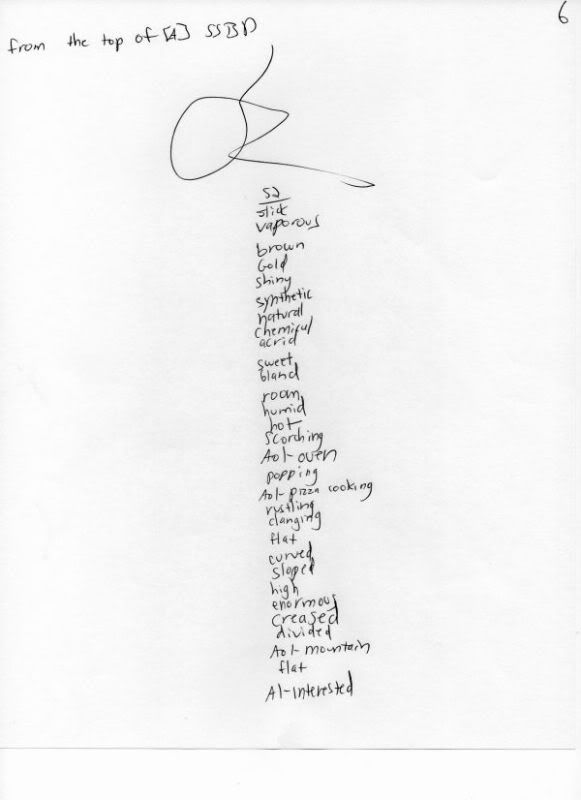 6
from the top of [A] SSBD
S2
slick
vaporous
brown
Gold
shiny
synthetic
natural
chemical
acrid
sweet
bland
room
humid
hot
scorching
Aol-oven
popping
Aol-pizza cooking
rustling
clanging
flat
curved
sloped
high
enormous
creased
divided
Aol-mountain
flat
AI-interested